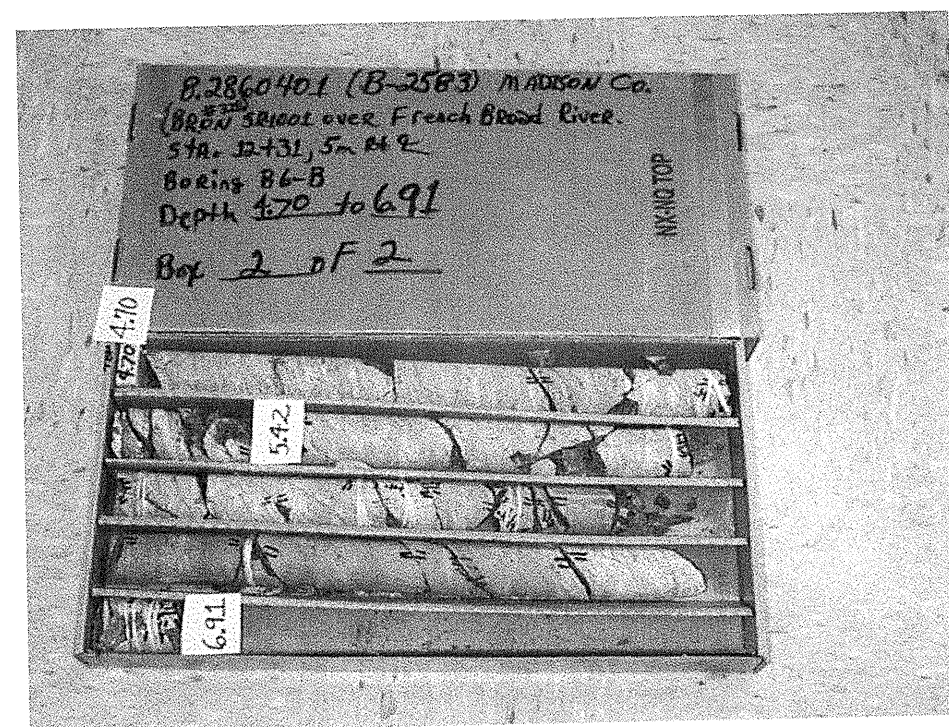 8.2860401 (B-2583) MADISON Co.
(BRDN SR1001 over French Broad River.
STA. 12+31, 5m Rt
Boring B6-B
Depth 4.70 to 6.91
Box 2 OF 2
NX-NQ TOP
4.70
4.70
5.42
6.91